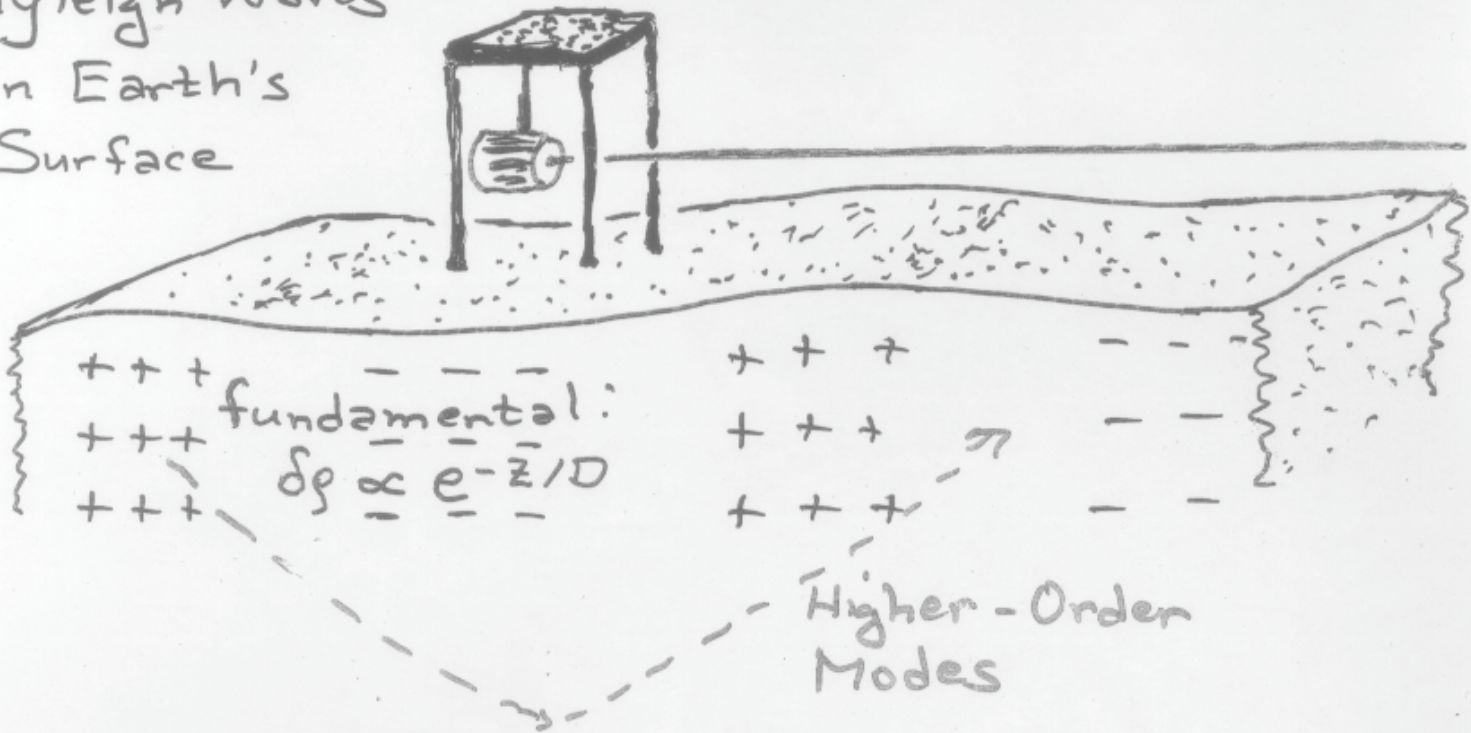 yleigh Waves
n Earth's
Surface
+ + + - - - + + + - - -
fundamental:
+ + + - - - + + + - -
δρ ∝ e-z/D
+ + + - - - + + + - -
Higher-Order
Modes